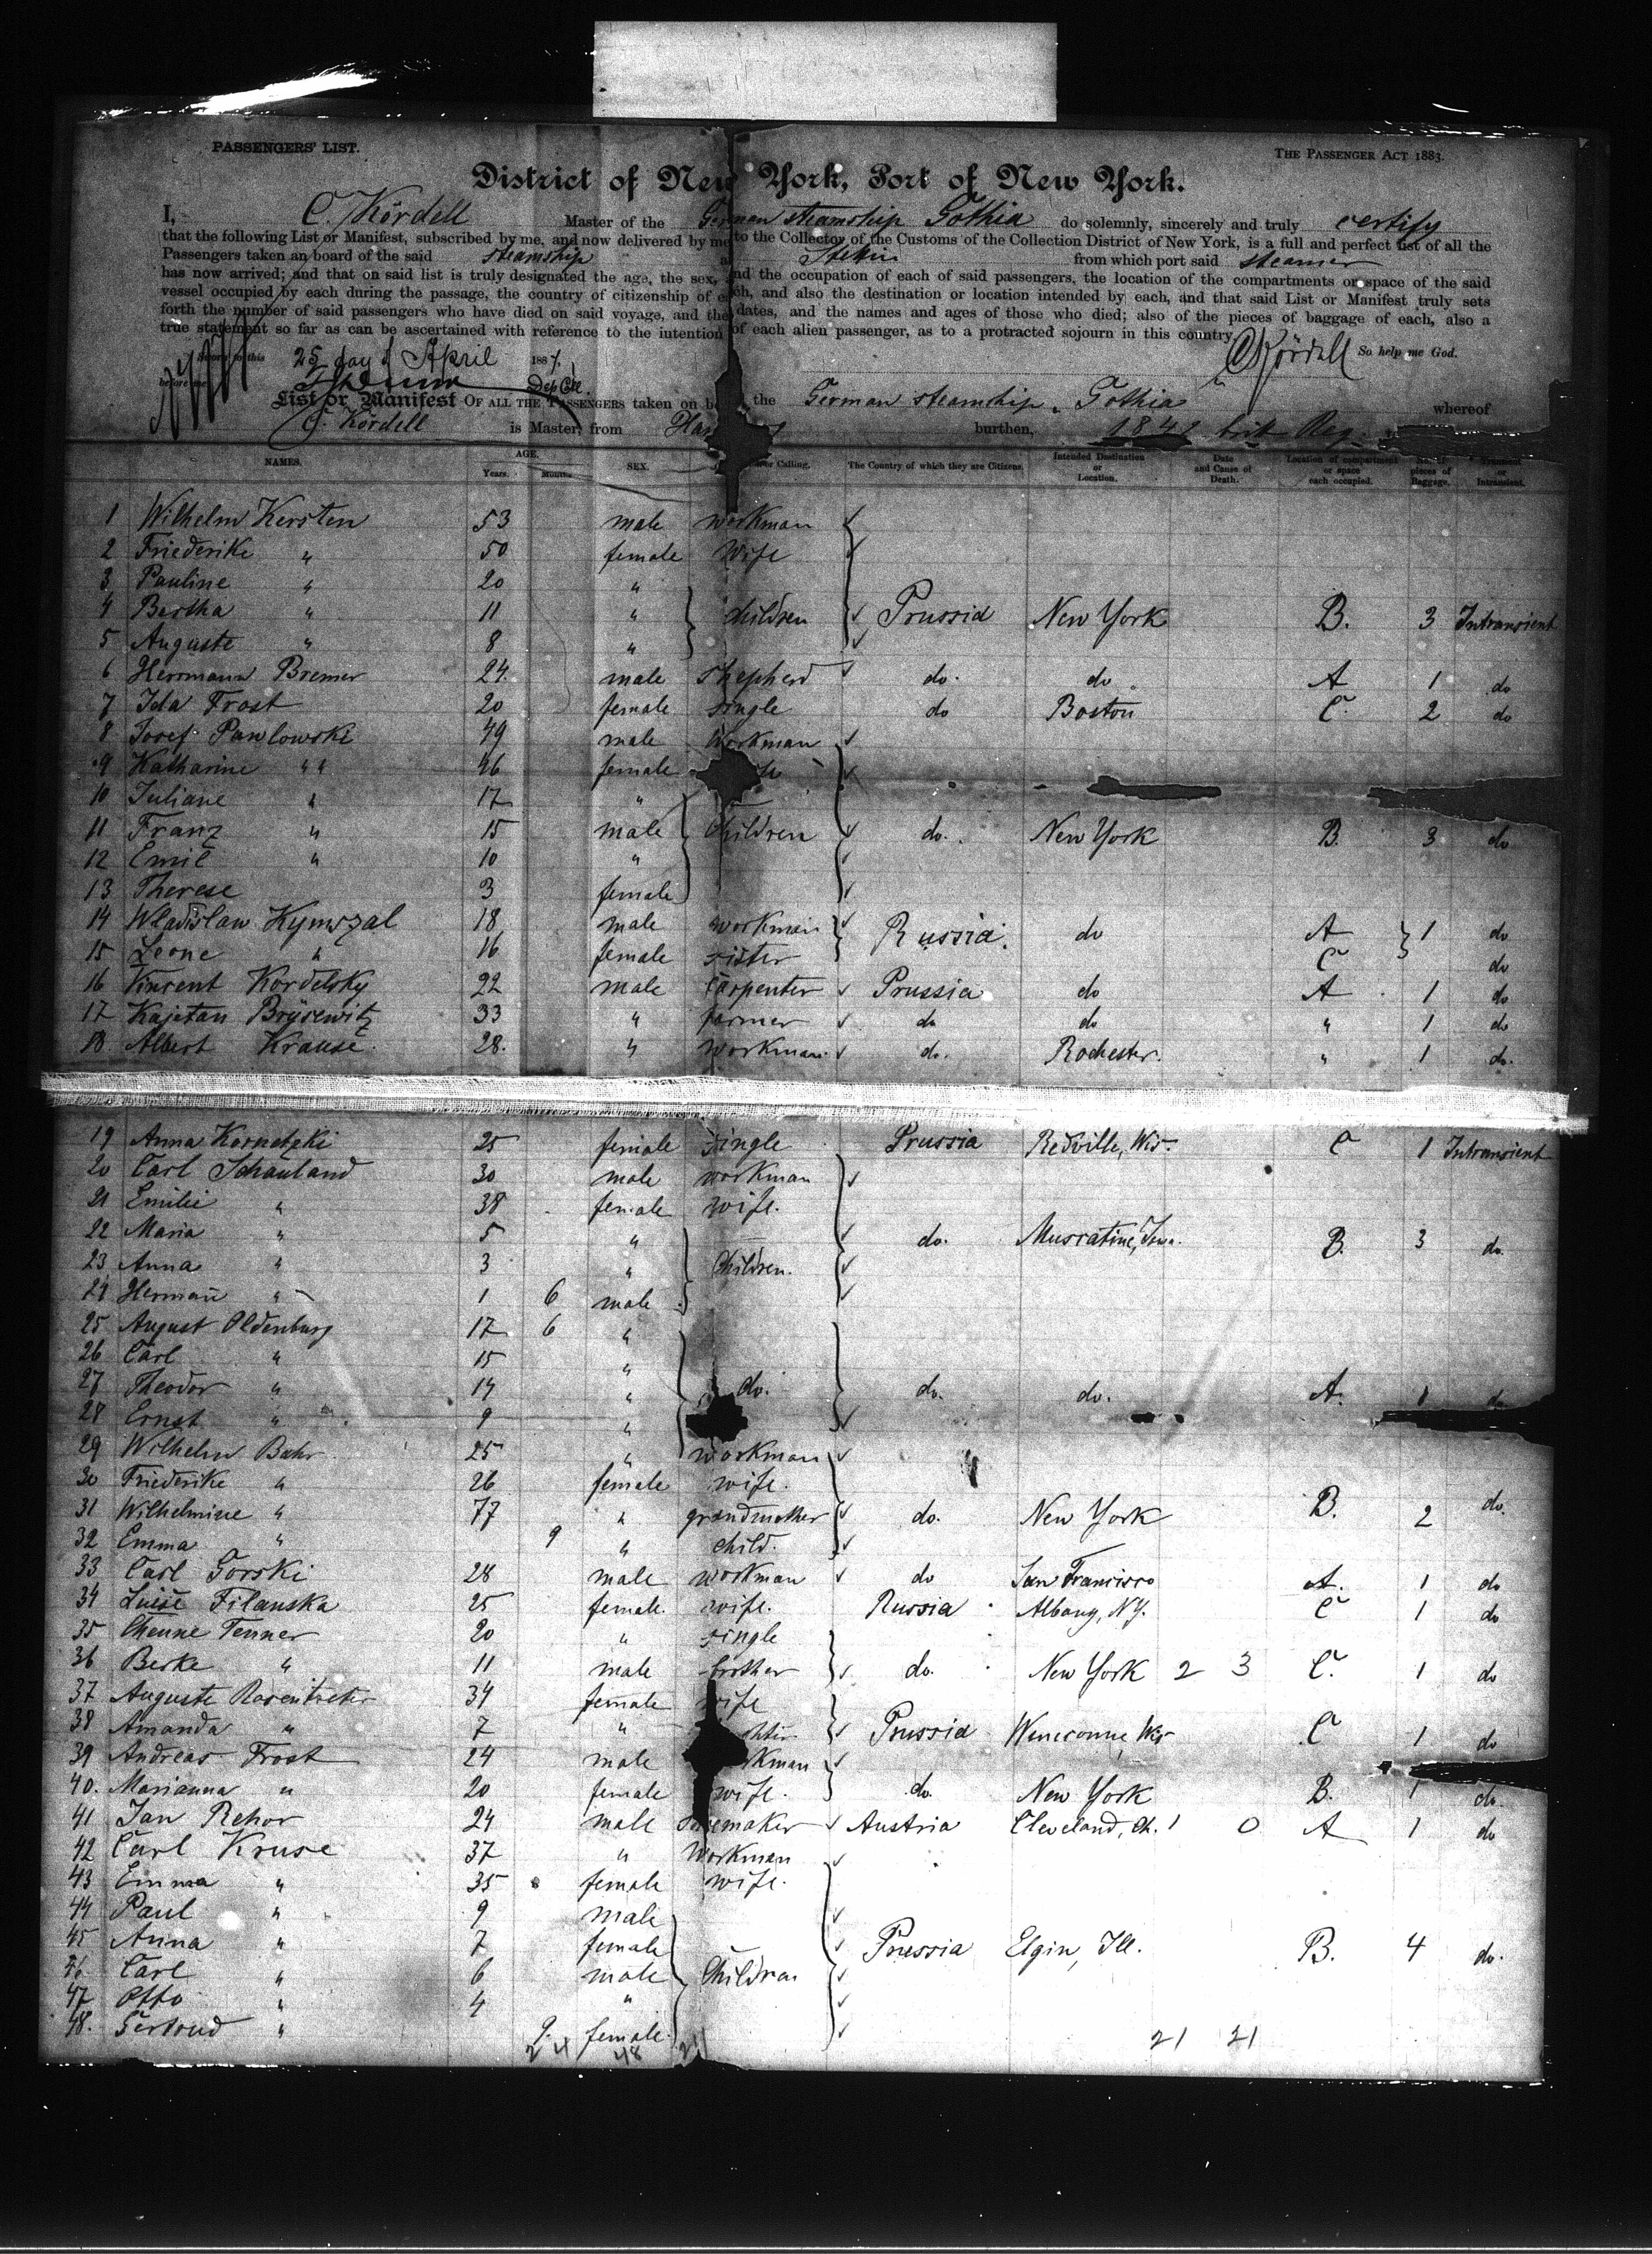 PASSENGERS' LIST.
THE PASSENGER ACT 1883.
District of New York, Port of New York.
I, C. Kördell Master of the German steamship Gothia do solemnly, sincerely and truly certify
that the following List or Manifest, subscribed by me, and now delivered by me to the Collector of the Customs of the Collection District of New York, is a full and perfect list of all the
Passengers taken on board of the said steamship at Stettin from which port said steamer
has now arrived; and that on said list is truly designated the age, the sex, and the occupation of each of said passengers, the location of the compartments or space of the said
vessel occupied by each during the passage, the country of citizenship of each, and also the destination or location intended by each, and that said List or Manifest truly sets
forth the number of said passengers who have died on said voyage, and the dates, and the names and ages of those who died; also of the pieces of baggage of each, also a
true statement so far as can be ascertained with reference to the intention of each alien passenger, as to a protracted sojourn in this country
Sworn to this 25 day of April 1887. C Kördell So help me God.
before me Dep Col.
List or Manifest OF ALL THE PASSENGERS taken on the German steamship Gothia whereof
C. Kördell is Master, from burthen, Reg.
NAMES. AGE. Years. Months. SEX. Calling. The Country of which they are Citizens. Intended Destination or Location. Date and Cause of Death. Location of compartment or space each occupied. pieces of Baggage. or Intransient.
1 Wilhelm Kersten 53 male workman
2 Friederike " 50 female wife
3 Pauline " 20 "
4 Bertha " 11 " children Prussia New York B. 3 Intransient
5 Auguste " 8 "
6 Herrmann Bremer 24. male shepherd do. do A 1 do
7 Ida Frost 20 female single do Boston C. 2 do
8 Josef Pawlowski 49 male workman
9 Katharine " 46 female
10 Juliane " 17 "
11 Franz " 15 male children do. New York B. 3 do
12 Emil " 10 "
13 Therese 3 female
14 Wladislaw Kymszal 18 male workman Russia. do A 1 do
15 Leone " 16 female sister C do
16 Vincent Kordelsky 22 male carpenter Prussia do A 1 do
17 Kajetan Brysewitz 33 " farmer do do " 1 do
18. Albert Krause. 28. " workman. do. Rochester. " 1 do.
19 Anna Kornetzki 25 female single Prussia Redville, Wis. C 1 Intransient
20 Carl Schauland 30 male workman
21 Emilie " 38 female wife.
22 Maria " 5 " do. Muscatine, Iowa. B. 3 do.
23 Anna " 3 " Children.
24 Hermañ " 1 6 male
25 August Oldenburg 17 6 "
26 Carl " 15 "
27 Theodor " 14 " do. do. do. A. 1 do
28 Ernst " 9 "
29 Wilhelm Bahr 25 " workman
30 Friederike " 26 female wife.
31 Wilhelmine " 77 " grandmother do. New York B. 2 do.
32 Emma " 9 " child.
33 Carl Gorski 28 male workman do San Francisco A. 1 do
34 Luise Filanska 25 female. wife. Russia Albany, N.Y. C 1 do
35 Tenner 20 " single
36 Berke " 11 male brother do. New York 2 3 C. 1 do
37 Auguste Rosentreter 34 female wife
38 Amanda " 7 " Prussia Winneconne, Wis C 1 do
39 Andreas Frost 24 male
40. Marianna " 20 female wife. do. New York B. 1 do.
41 Jan Rehor 24 male Austria Cleveland, Oh. 1 0 A 1 do
42 Carl Kruse 37 " Workman
43 Emma " 35 female wife.
44 Paul " 9 male
45 Anna " 7 female Prussia Elgin, Ill. B. 4 do.
46 Carl " 6 male Children
47 Otto " 4 "
48. Gertrud " 9. female.
24 48 21 21